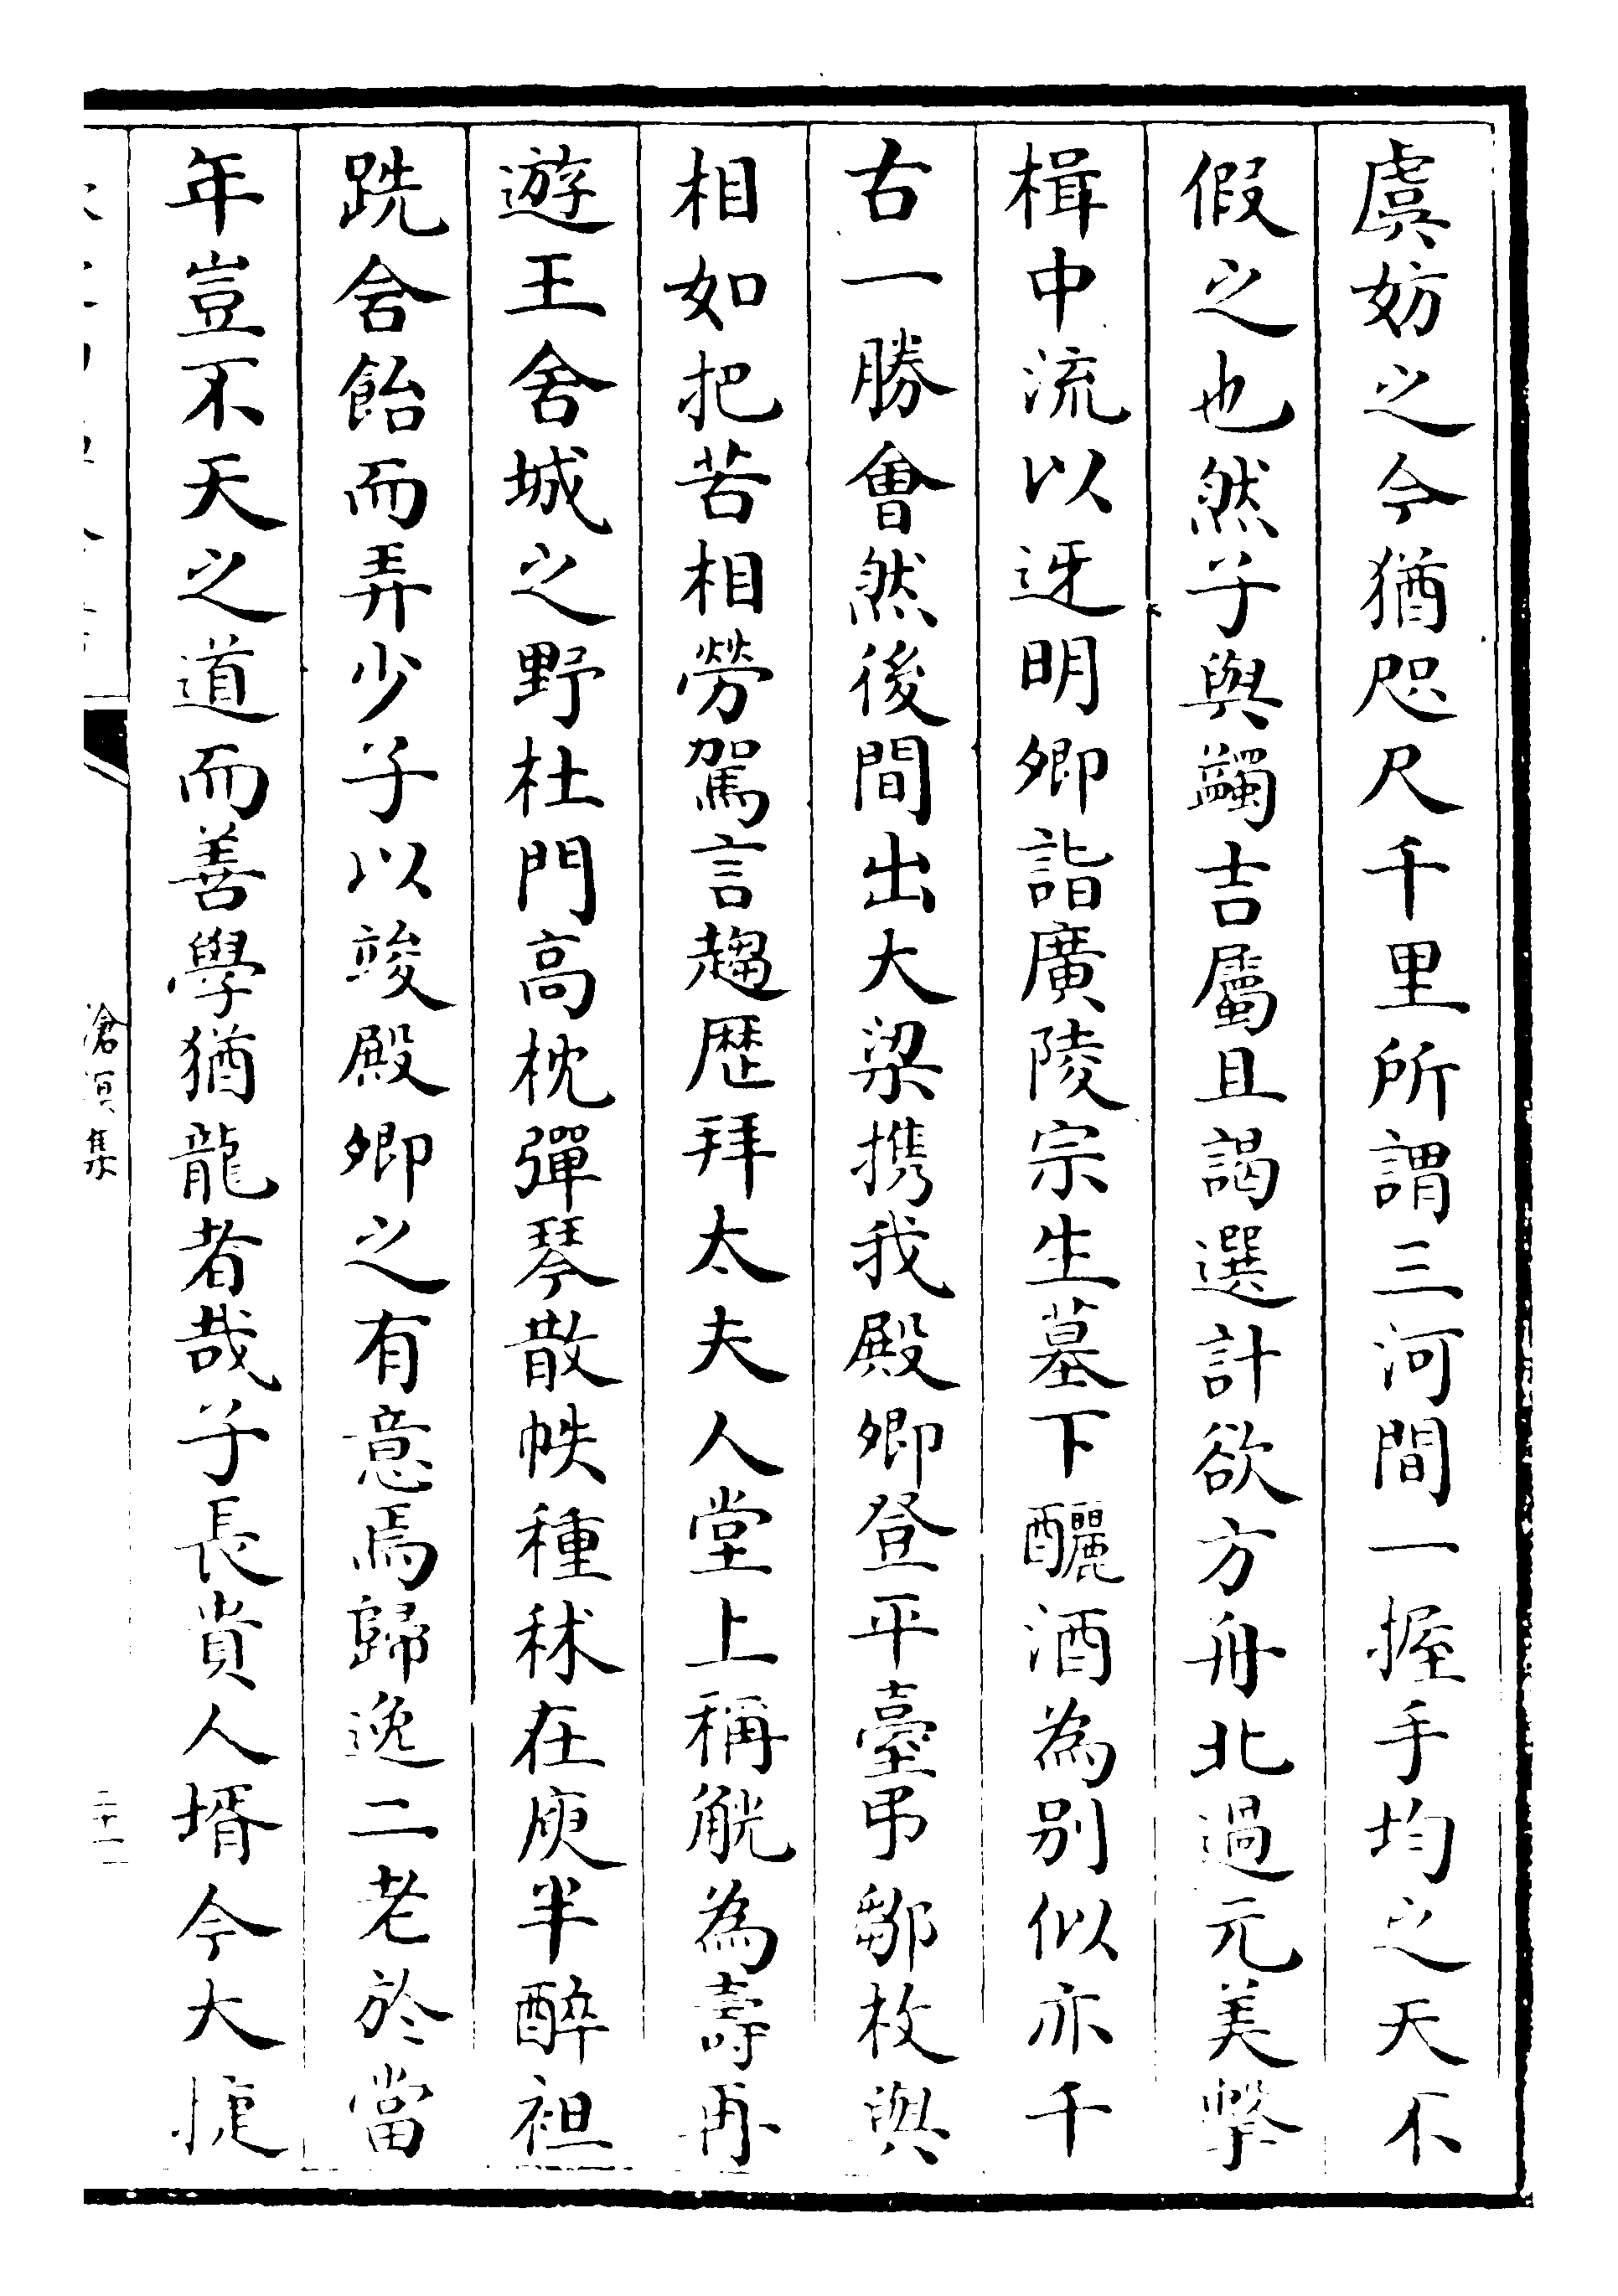 虞妨之今猶咫尺千里所謂三河間一握手均之天不
假之也然子與蠲吉屬且謁選計欲方舟北過元美擊
楫中流以迓明卿詣廣陵宗生墓下釃酒為别似亦千
右一勝會然後間出大梁携我殿卿登平臺弔鄒枚與
相如把苦相勞駕言趨歴拜太夫人堂上稱觥為壽再
遊王舍城之野杜門高枕彈琴散帙種秫在庾半醉袒
跣含飴而弄少子以竣殿卿之有意焉歸逸二老於當
年豈不天之道而善學猶龍者哉子長貴人壻今大捷
滄溟集
二十一